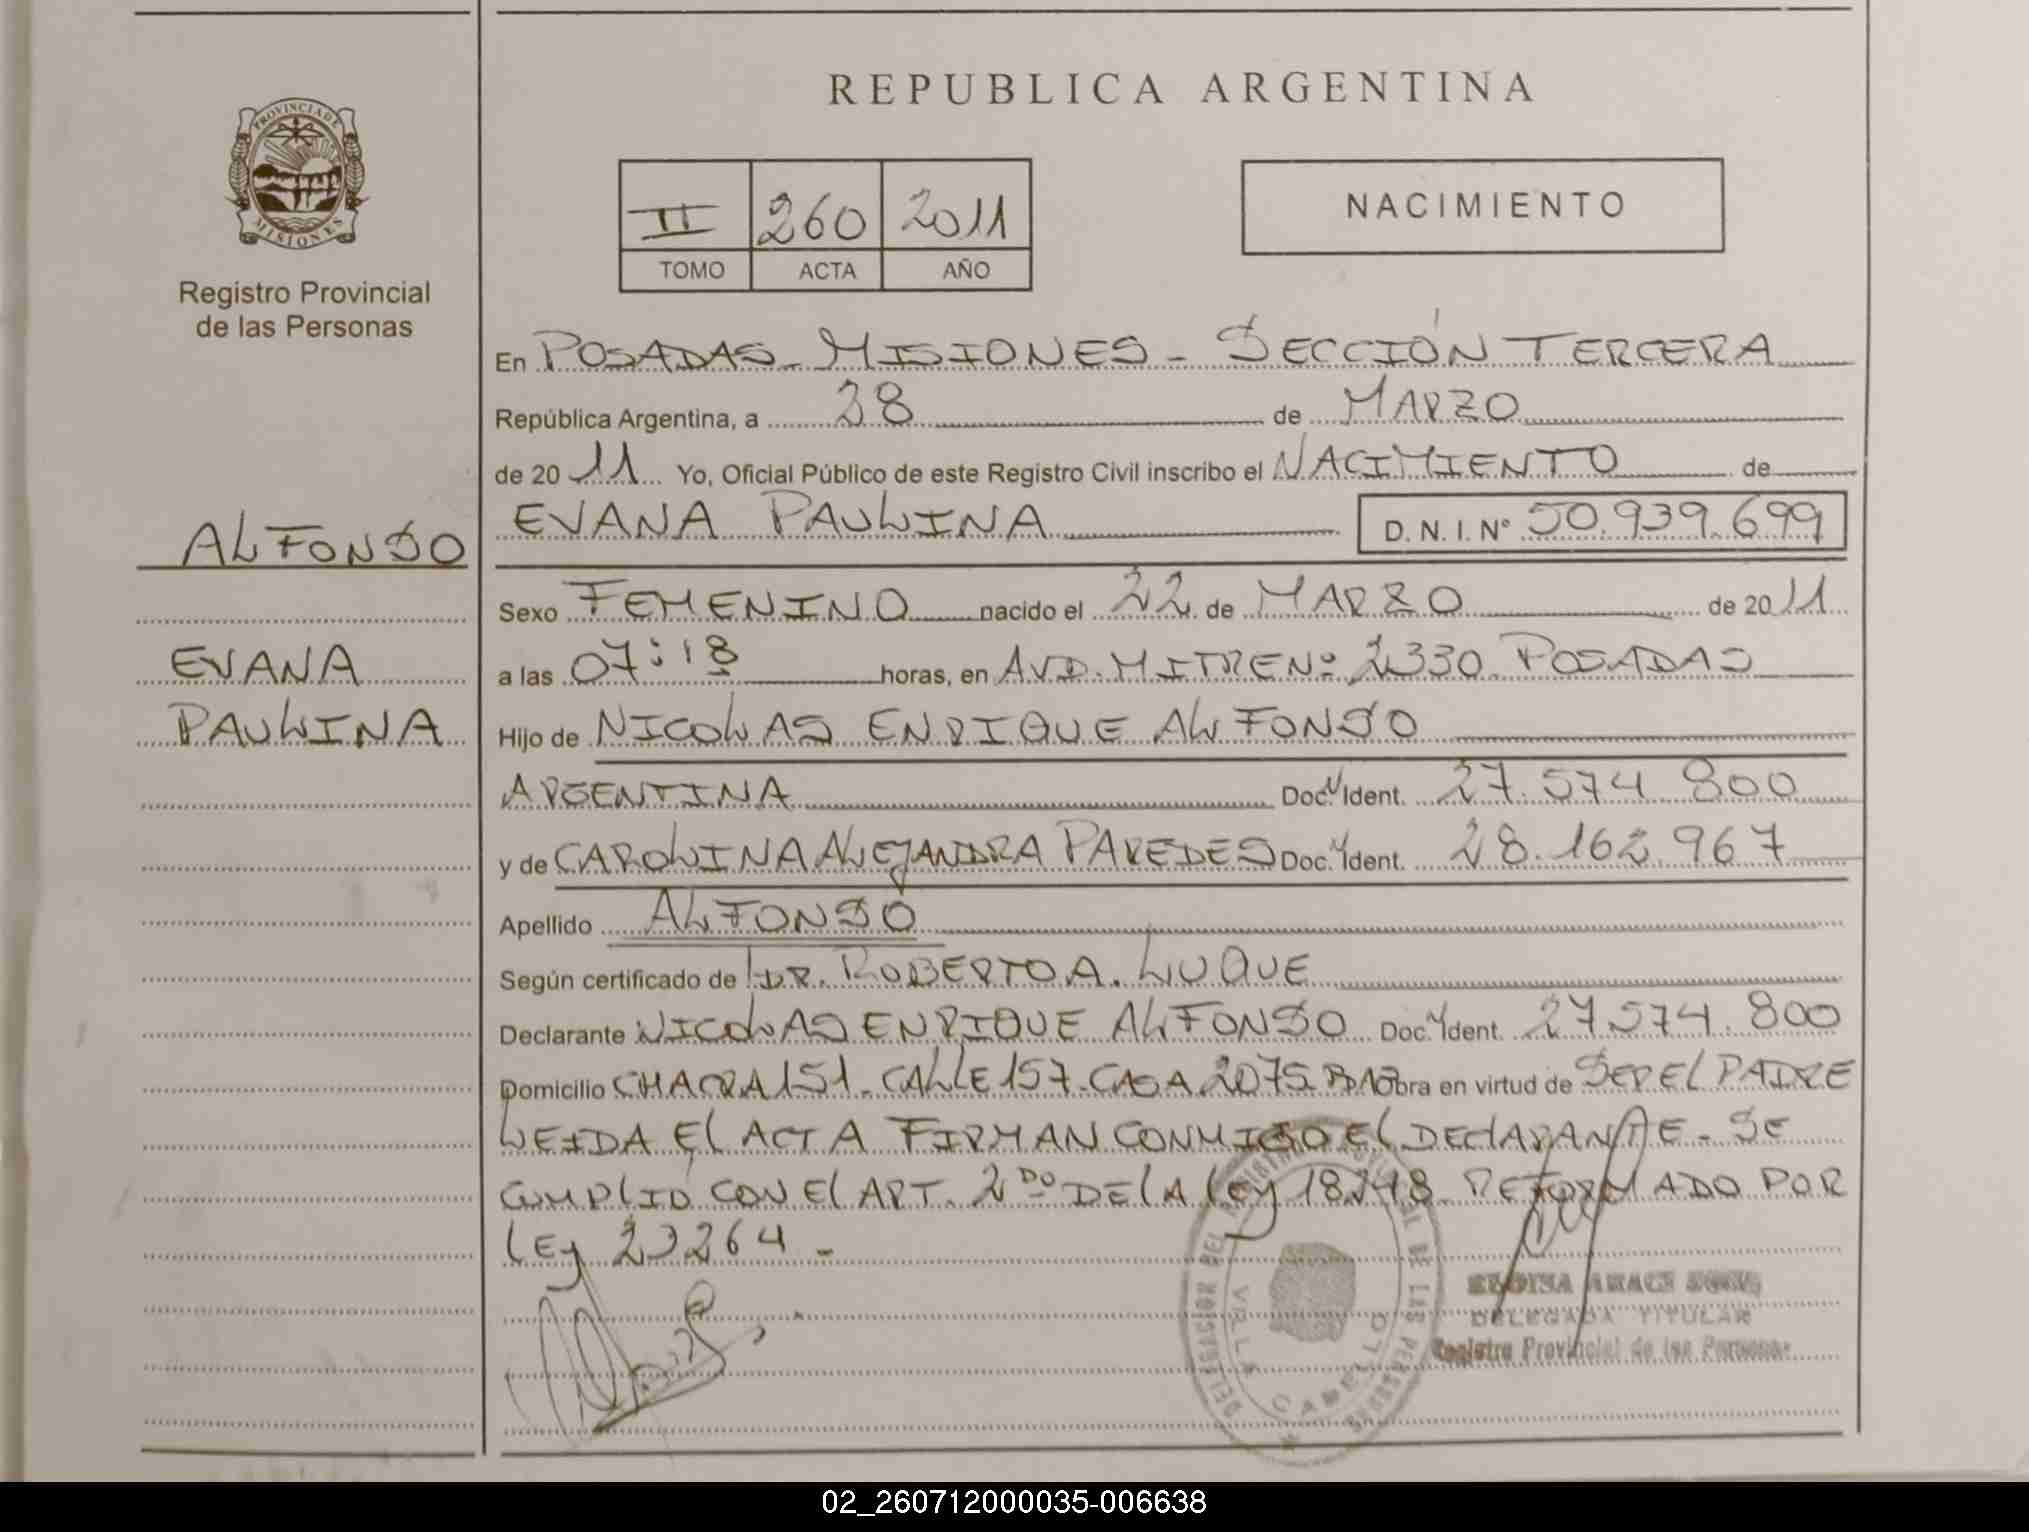 REPUBLICA ARGENTINA
PROVINCIA DE
MISIONES
Registro Provincial
de las Personas
II 260 2011
TOMO ACTA AÑO
NACIMIENTO
En POSADAS - MISIONES - SECCIÓN TERCERA
República Argentina, a 28 de MARZO
de 2011 Yo, Oficial Público de este Registro Civil inscribo el NACIMIENTO de
EVANA PAULINA D. N. I. Nº 50.939.699
ALFONSO
EVANA
PAULINA
Sexo FEMENINO nacido el 22 de MARZO de 2011
a las 07:18 horas, en AVD. MITRE Nº 2330 POSADAS
Hijo de NICOLAS ENRIQUE ALFONSO
ARGENTINA Doc. Ident. 27.574.800
y de CAROLINA ALEJANDRA PAREDES Doc. Ident. 28.162.967
Apellido ALFONSO
Según certificado de DR. ROBERTO A. LUQUE
Declarante NICOLAS ENRIQUE ALFONSO Doc. Ident. 27.574.800
Domicilio CHACRA 151 - CALLE 157 - CASA 2075 obra en virtud de SER EL PADRE
LEIDA EL ACTA FIRMAN CONMIGO EL DECLARANTE - SE
CUMPLIÓ CON EL ART. 2DO DE LA LEY 18248 REFORMADO POR
LEY 23264 -
DELEGADA TITULAR
Registro Provincial de las Personas
VILLA CABELLO
02_260712000035-006638